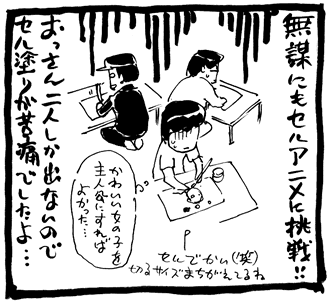 無謀にもセルアニメに挑戦!!
おっさん二人しか出ないので
セル塗りが苦痛でしたよ…
かわいい女の子を
主人公にすれば
よかった…
せんでかい(笑)
切るサイズまちがえてるね